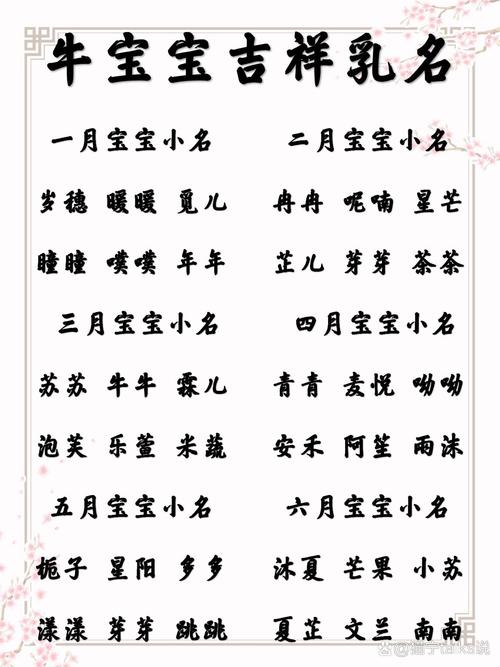 牛宝宝吉祥乳名
一月宝宝小名 二月宝宝小名
岁穗 暖暖 觅儿 冉冉 呢喃 星芒
瞳瞳 噗噗 年年 芷儿 芽芽 茶茶
三月宝宝小名 四月宝宝小名
苏苏 牛牛 霖儿 青青 麦悦 呦呦
泡芙 乐萱 米蔬 安禾 阿笙 雨沫
五月宝宝小名 六月宝宝小名
栀子 星阳 多多 沐夏 芒果 小苏
漾漾 芽芽 跳跳 夏芷 文兰 南南